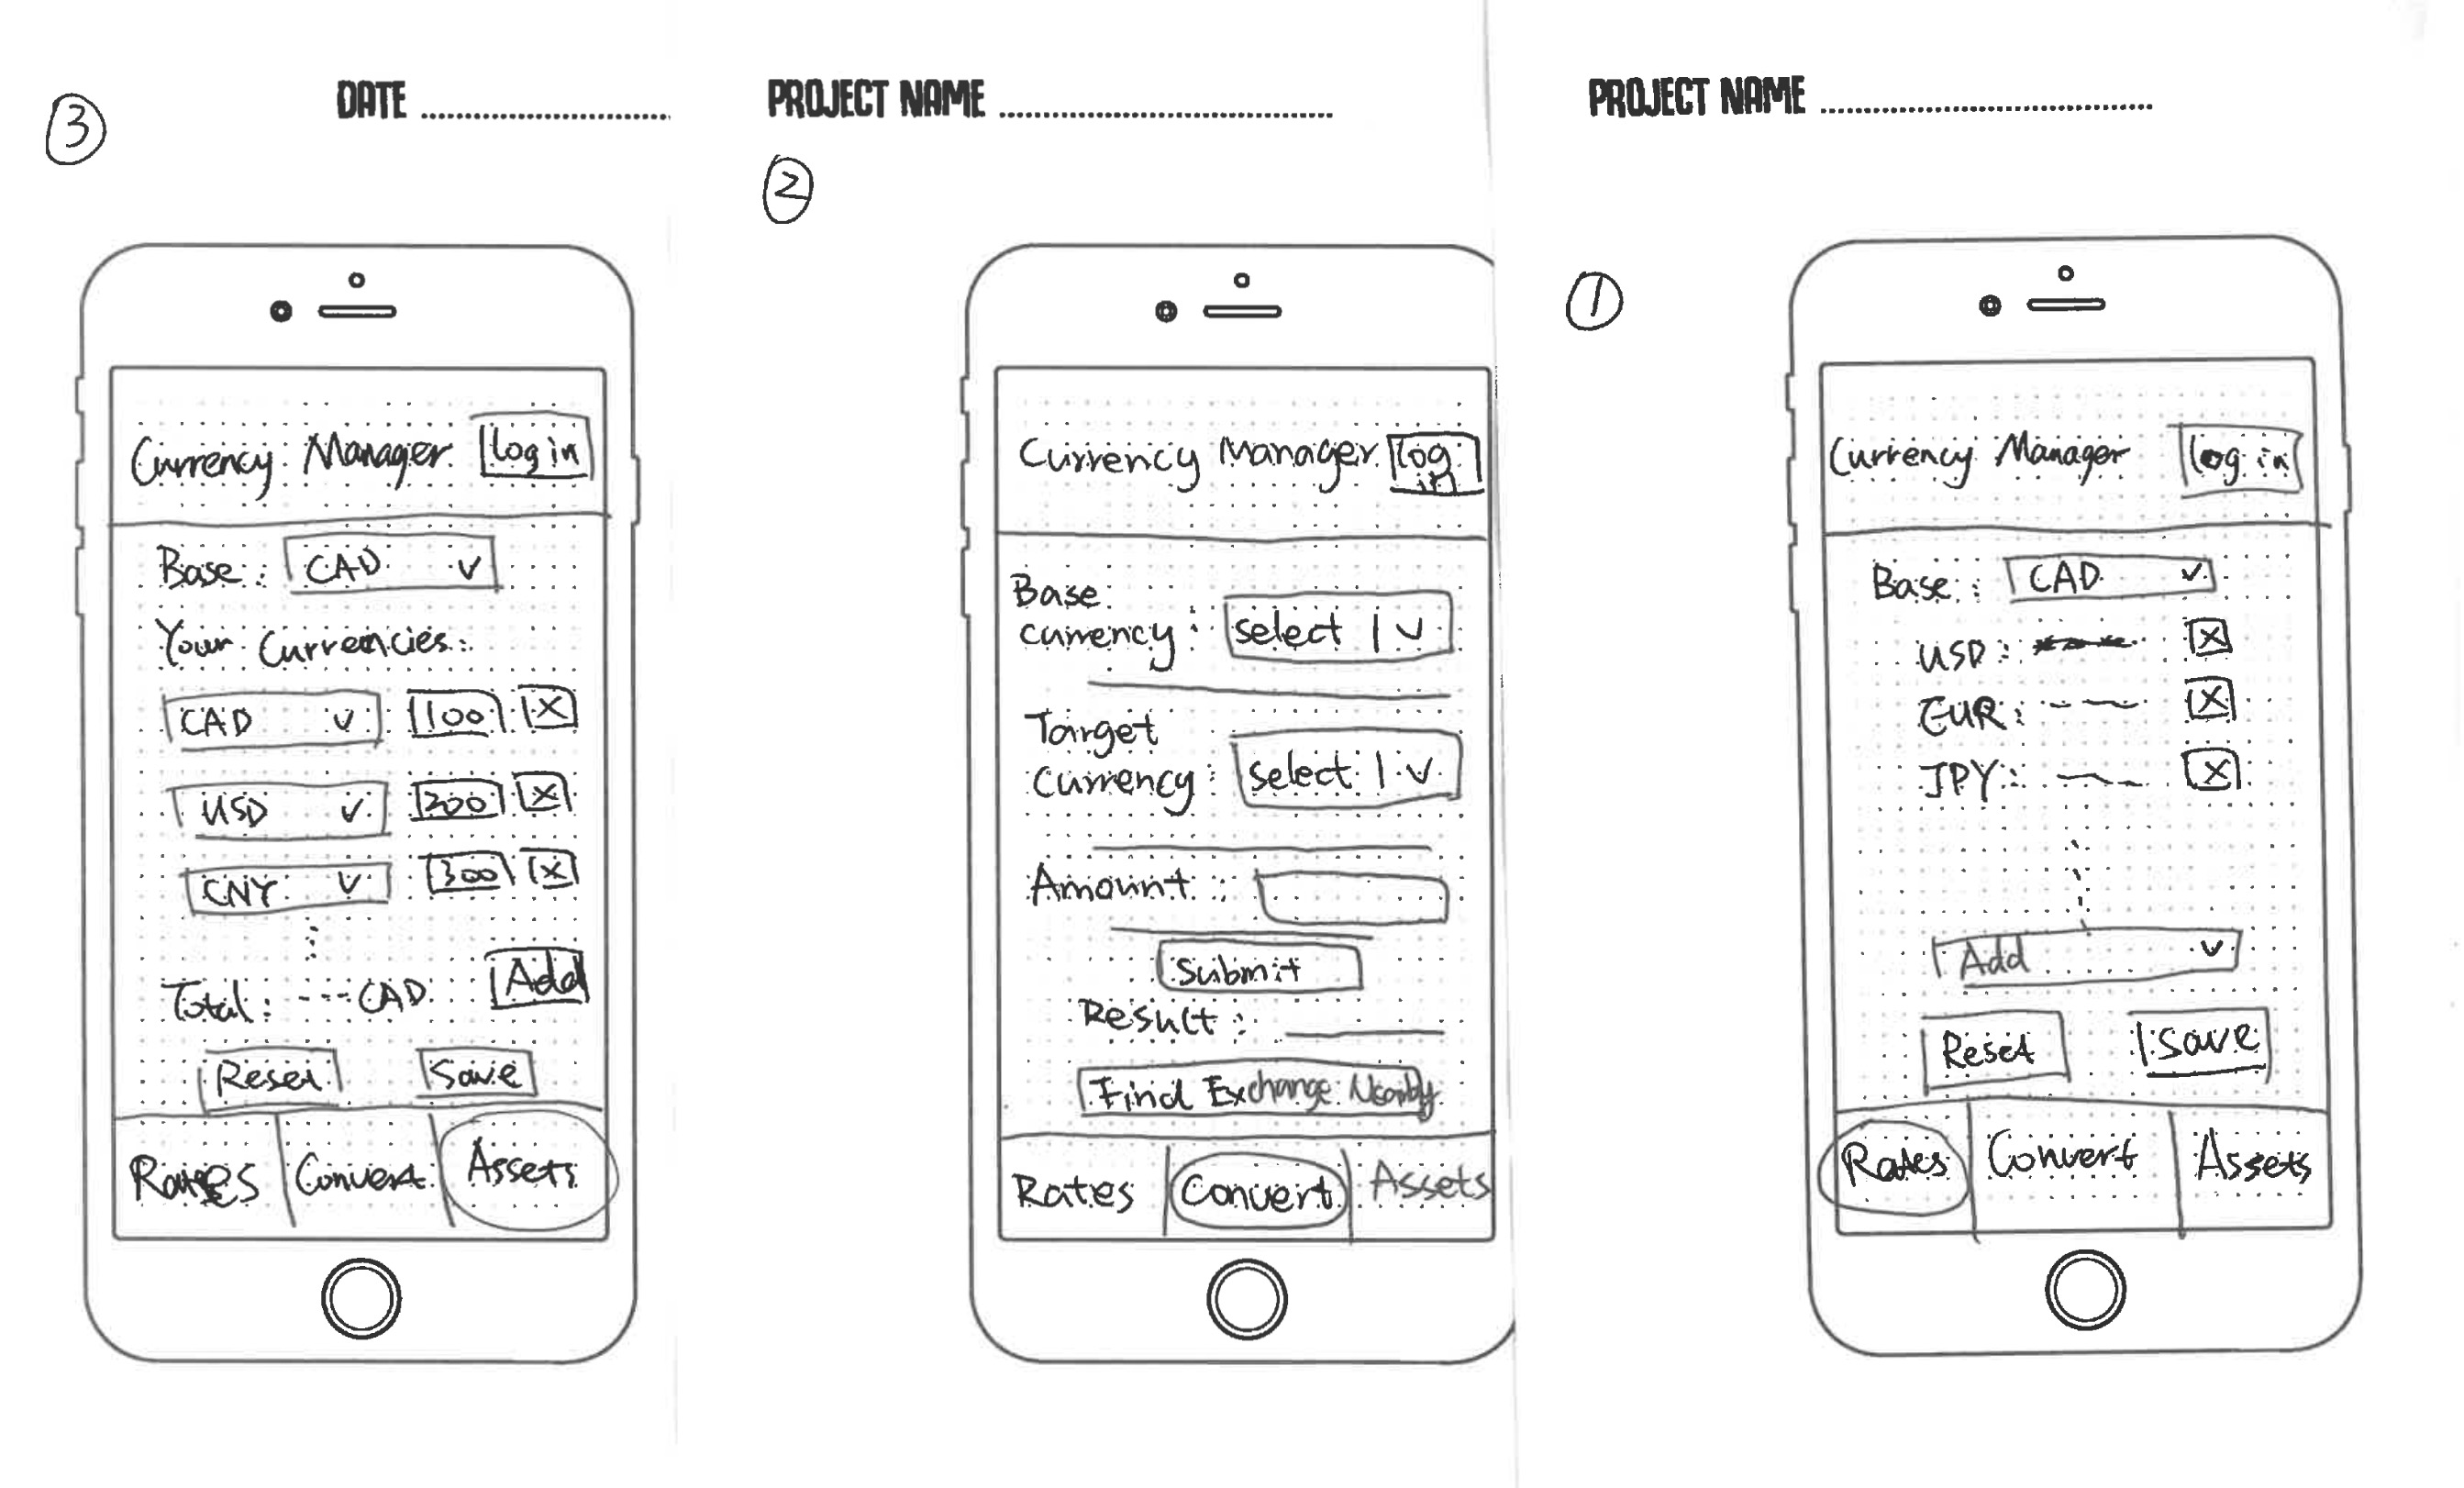 ③
DATE
Currency Manager log in
Base: CAD
Your Currencies:
CAD 100 X
USD 200 X
CNY 300 X
Total: CAD Add
Reset Save
Rates Convert Assets
PROJECT NAME
②
Currency Manager log in
Base
currency: select
Target
Currency: select
Amount:
Submit
Result:
Find Exchange Nearby
Rates Convert Assets
PROJECT NAME
①
Currency Manager log in
Base: CAD
USD: X
EUR: X
JPY: X
Add
Reset Save
Rates Convert Assets